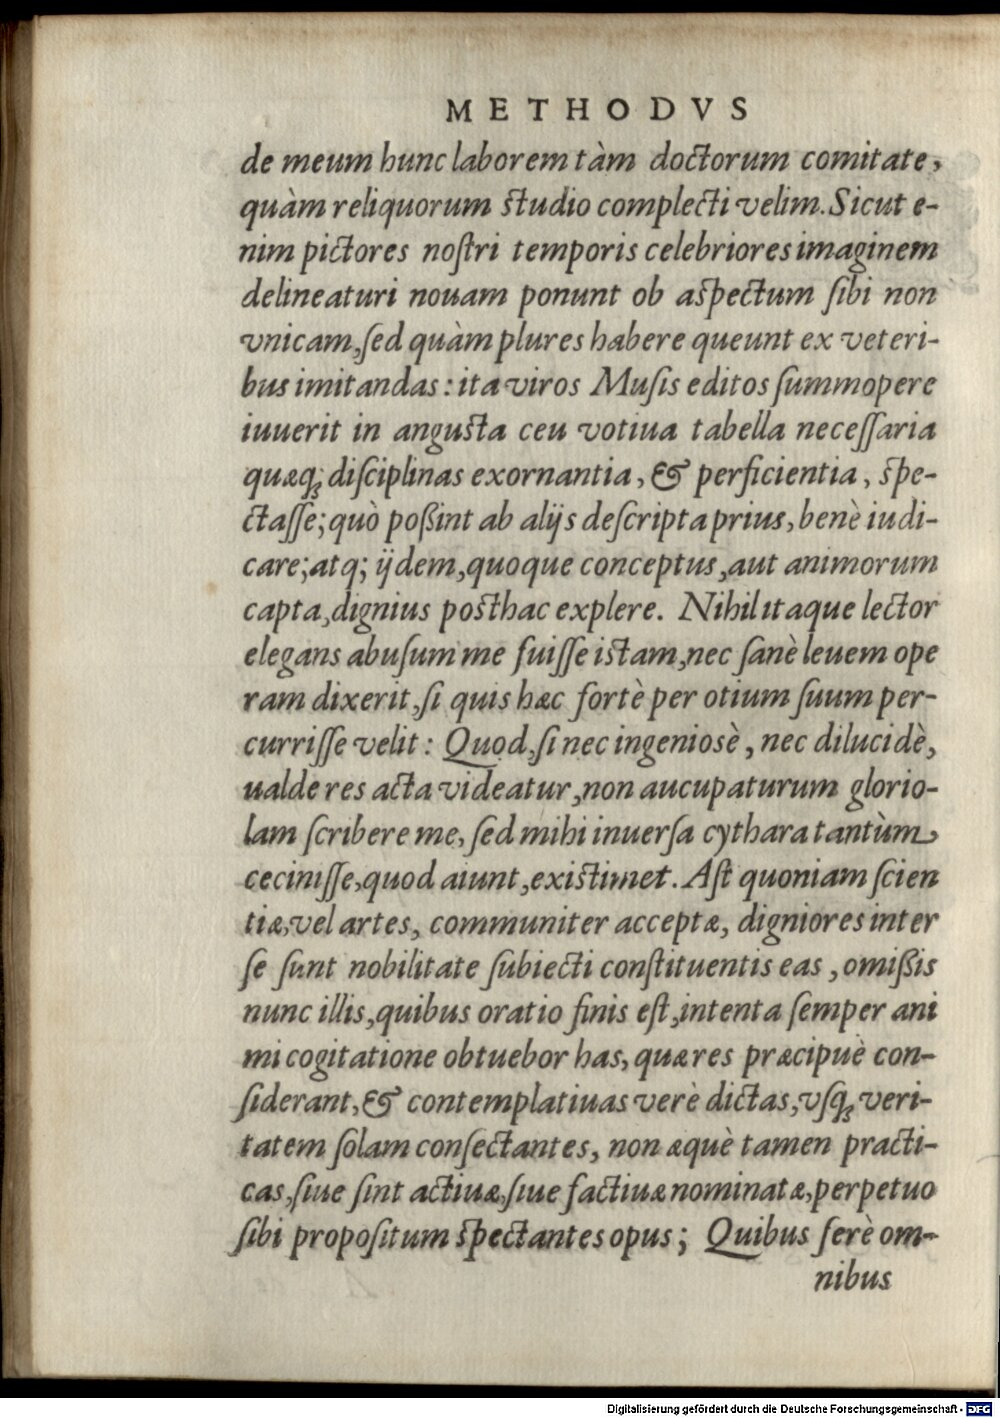 METHODVS
de meum hunc laborem tàm doctorum comitate,
quàm reliquorum studio complecti velim. Sicut e-
nim pictores noſtri temporis celebriores imaginem
delineaturi nouam ponunt ob aspectum ſibi non
vnicam, ſed quàm plures habere queunt ex veteri-
bus imitandas: ita viros Muſis editos ſummopere
iuuerit in angusta ceu votiua tabella neceſſaria
quæq; diſciplinas exornantia, & perficientia, spe-
ctaſſe; quò poßint ab alijs deſcripta prius, benè iudi-
care; atq; ijdem, quoque conceptus, aut animorum
capta, dignius posthac explere. Nihil itaque lector
elegans abuſum me fuiſſe istam, nec ſanè leuem ope
ram dixerit, ſi quis hæc fortè per otium ſuum per-
curriſſe velit: Quod, ſi nec ingeniosè, nec dilucidè,
ualde res acta videatur, non aucupaturum glorio-
lam ſcribere me, ſed mihi inuerſa cythara tantùm
ceciniſſe, quod aiunt, existimet. Aſt quoniam ſcien
tiæ, vel artes, communiter acceptæ, digniores inter
ſe ſunt nobilitate ſubiecti conſtituentis eas, omißis
nunc illis, quibus oratio finis eſt, intenta ſemper ani
mi cogitatione obtuebor has, quæ res præcipuè con-
ſiderant, & contemplatiuas verè dictas, vſq; veri-
tatem ſolam conſectantes, non æquè tamen practi-
cas, ſiue ſint actiuæ, ſiue factiuæ nominatæ, perpetuo
ſibi propoſitum spectantes opus; Quibus ferè om-
nibus
Digitalisierung gefördert durch die Deutsche Forschungsgemeinschaft - DFG